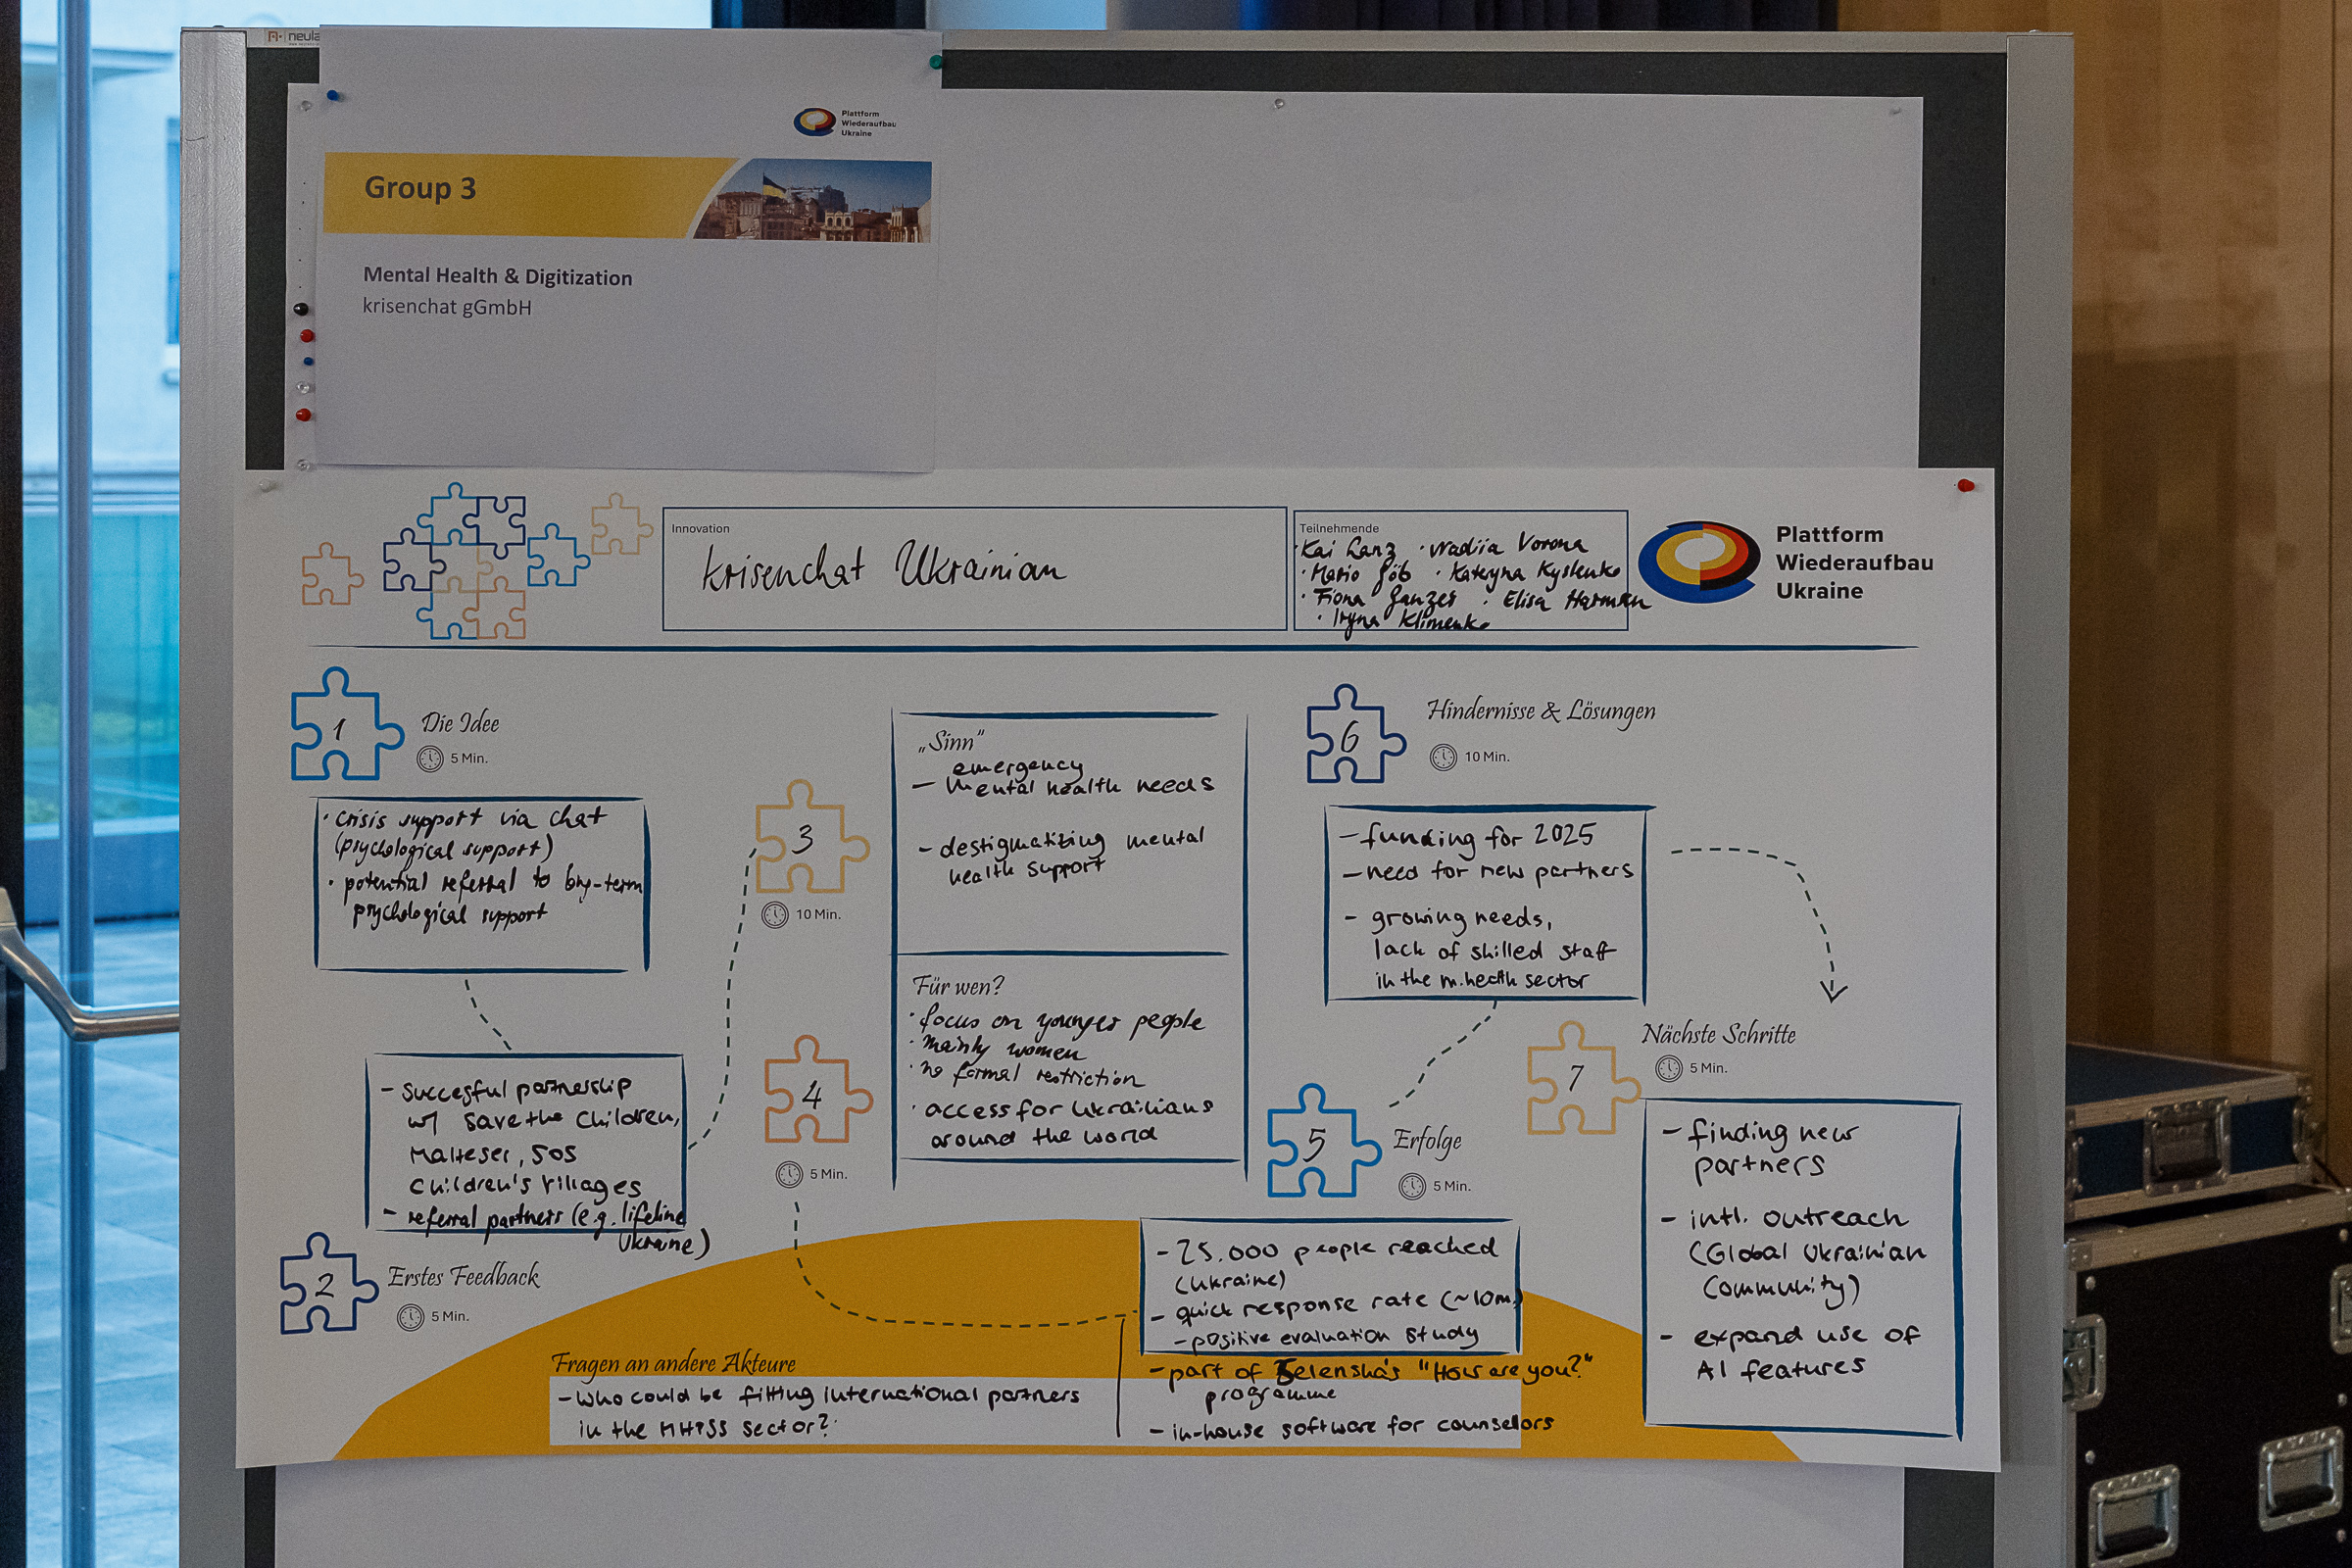 neula
Plattform
Wiederaufbau
Ukraine
Group 3
Mental Health & Digitization
krisenchat gGmbH
Innovation
krisenchat Ukrainian
Teilnehmende
· Kai Lanz · Nadiia Vorona
· Mario Göb · Kateryna Kyslenko
· Fiona Ganzer · Elisa Harmsen
· Iryna Klimenko
Plattform
Wiederaufbau
Ukraine
1
Die Idee
5 Min.
· crisis support via chat
(psychological support)
· potential referral to long-term
psychological support
- succesful partnership
w/ save the children,
Malteser, SOS
children's villages
- referral partners (e.g. lifeline
Ukraine)
2
Erstes Feedback
5 Min.
3
10 Min.
„Sinn"
emergency
- mental health needs
- destigmatizing mental
health support
4
5 Min.
Für wen?
· focus on younger people
· mainly women
· no formal restriction
· access for Ukrainians
around the world
5
Erfolge
5 Min.
- 25.000 people reached
(Ukraine)
- quick response rate (~10m)
- positive evaluation study
- part of Zelenska's "How are you?"
programme
- in-house software for counselors
Fragen an andere Akteure
- who could be fitting international partners
in the MHPSS sector?
6
Hindernisse & Lösungen
10 Min.
- funding for 2025
- need for new partners
- growing needs,
lack of skilled staff
in the m.health sector
7
Nächste Schritte
5 Min.
- finding new
partners
- intl. outreach
(Global Ukrainian
Community)
- expand use of
AI features